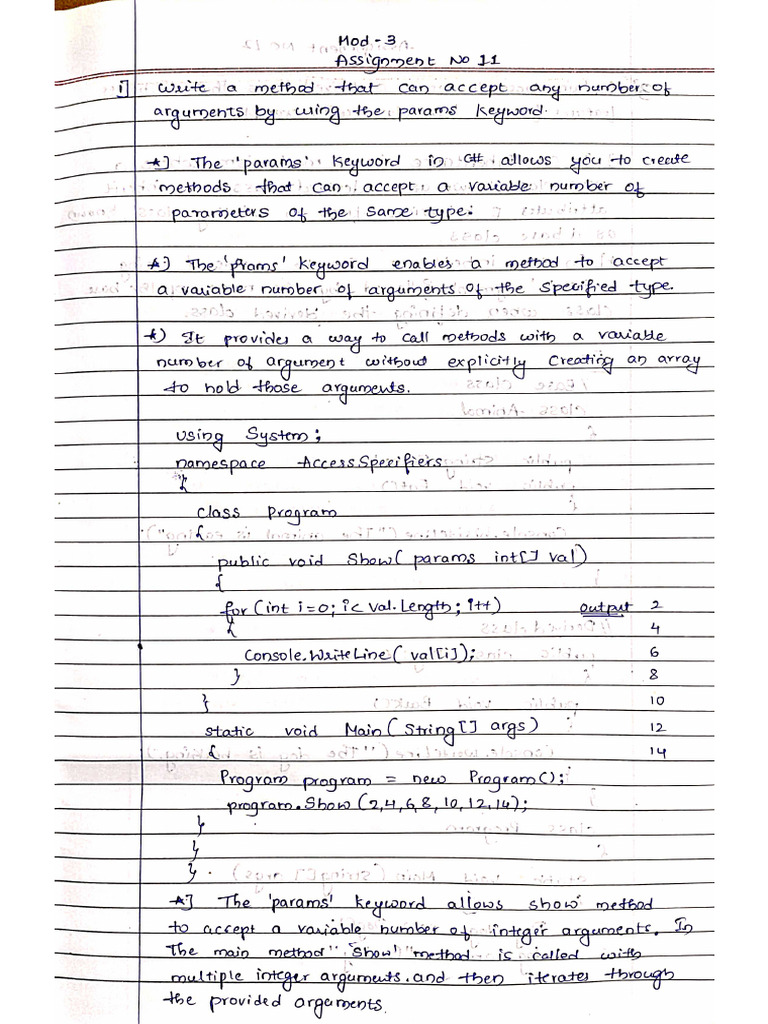 Mod - 3
Assignment No 11
1] Write a method that can accept any number of
arguments by using the params keyword.
*] The 'params' keyword in C# allows you to create
methods that can accept a variable number of
parameters of the same type.
*] The 'prams' keyword enables a method to accept
a variable number of arguments of the specified type.
*) It provides a way to call methods with a variable
number of argument without explicitly creating an array
to hold those arguments.
using System;
namespace AccessSpecifiers
{
class Program
{
public void Show( params int[] val)
{
for (int i=0; i< val.Length; i++) output 2
{ 4
Console.WriteLine( val[i]); 6
} 8
} 10
static void Main( String[] args) 12
{ 14
Program program = new Program();
program.Show (2,4,6,8,10,12,14);
}
}
}
*] The 'params' keyword allows show method
to accept a variable number of integer arguments. In
The main method" Show" method" is called with
multiple integer arguments.and then iterates through
the provided arguments.